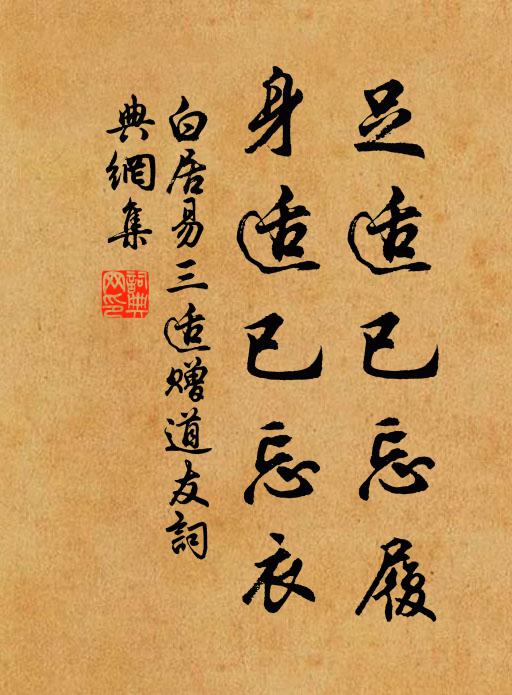 足适已忘履
身适已忘衣
白居易三适赠道友詞
典網集
詞典
网印